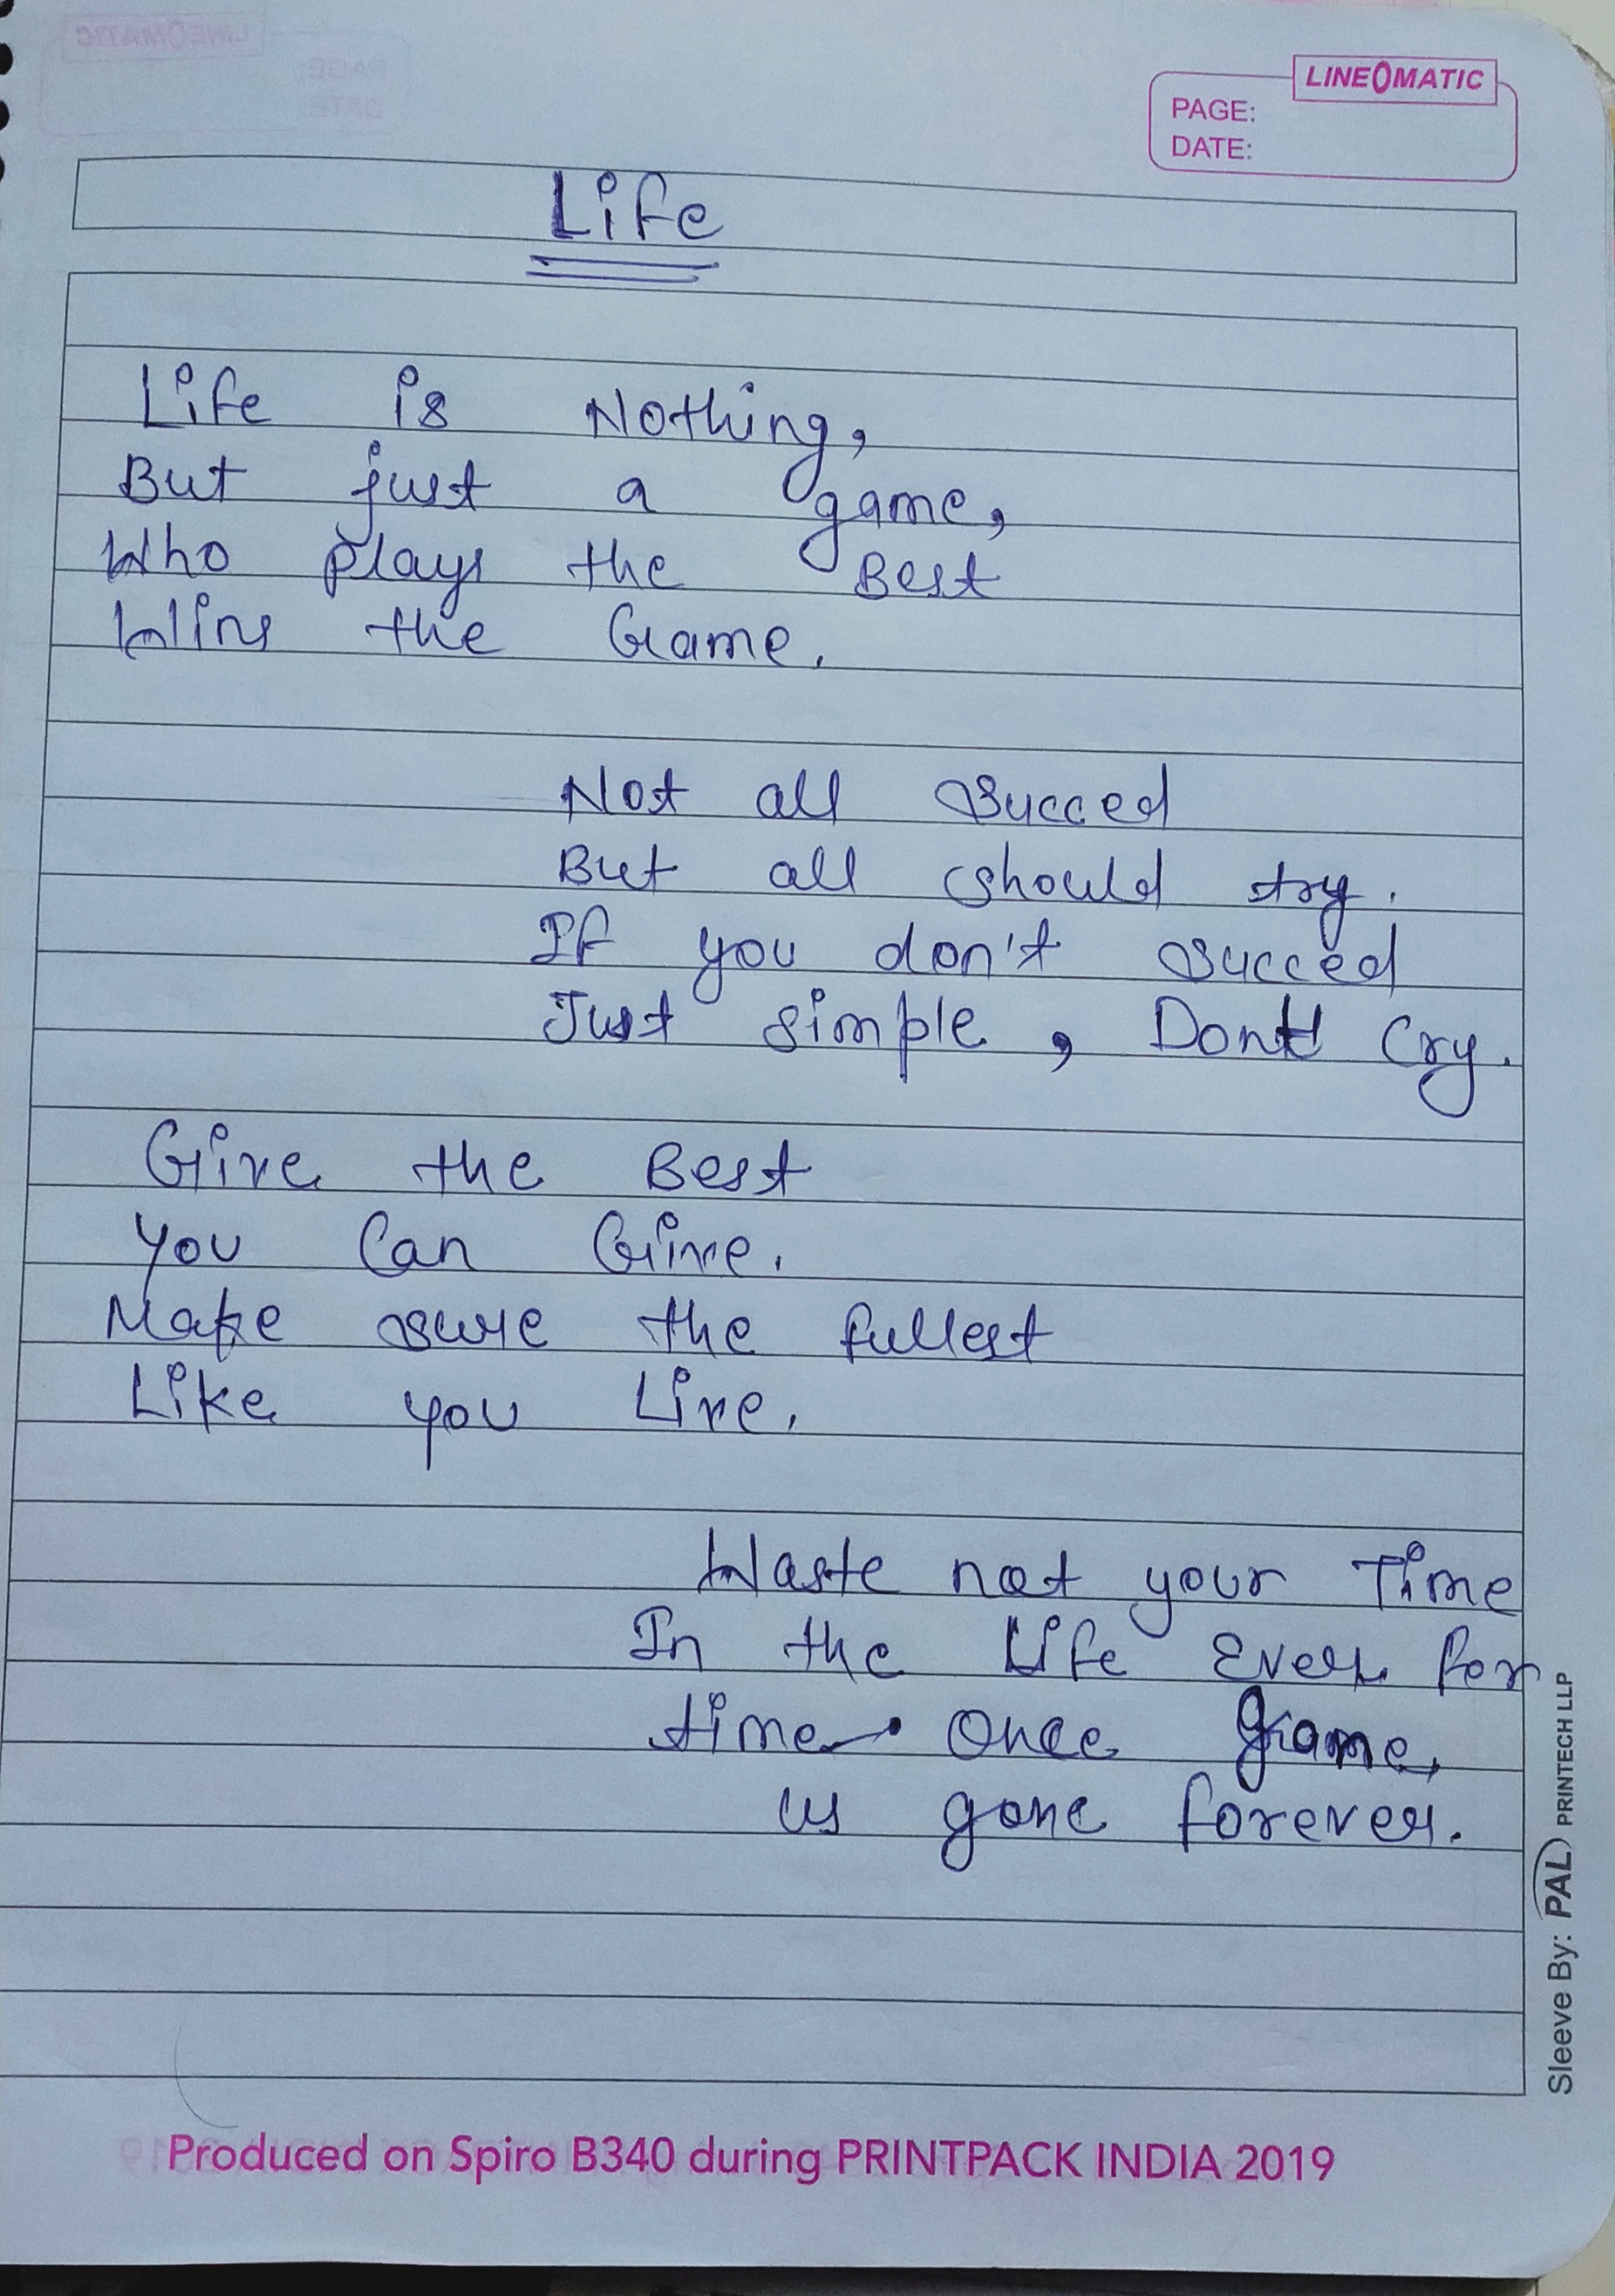 LINEOMATIC
PAGE:
DATE:
Life
Life is Nothing,
But just a game,
Who plays the Best
Wins the Game.
Not all succed
But all should try.
If you don't succed
Just simple, Dont Cry.
Give the Best
You Can Give.
Make sure the fullest
Like you Live.
Waste not your Time
In the Life Ever for
time. Once game,
us gone forever.
Sleeve By: PAL PRINTECH LLP
Produced on Spiro B340 during PRINTPACK INDIA 2019